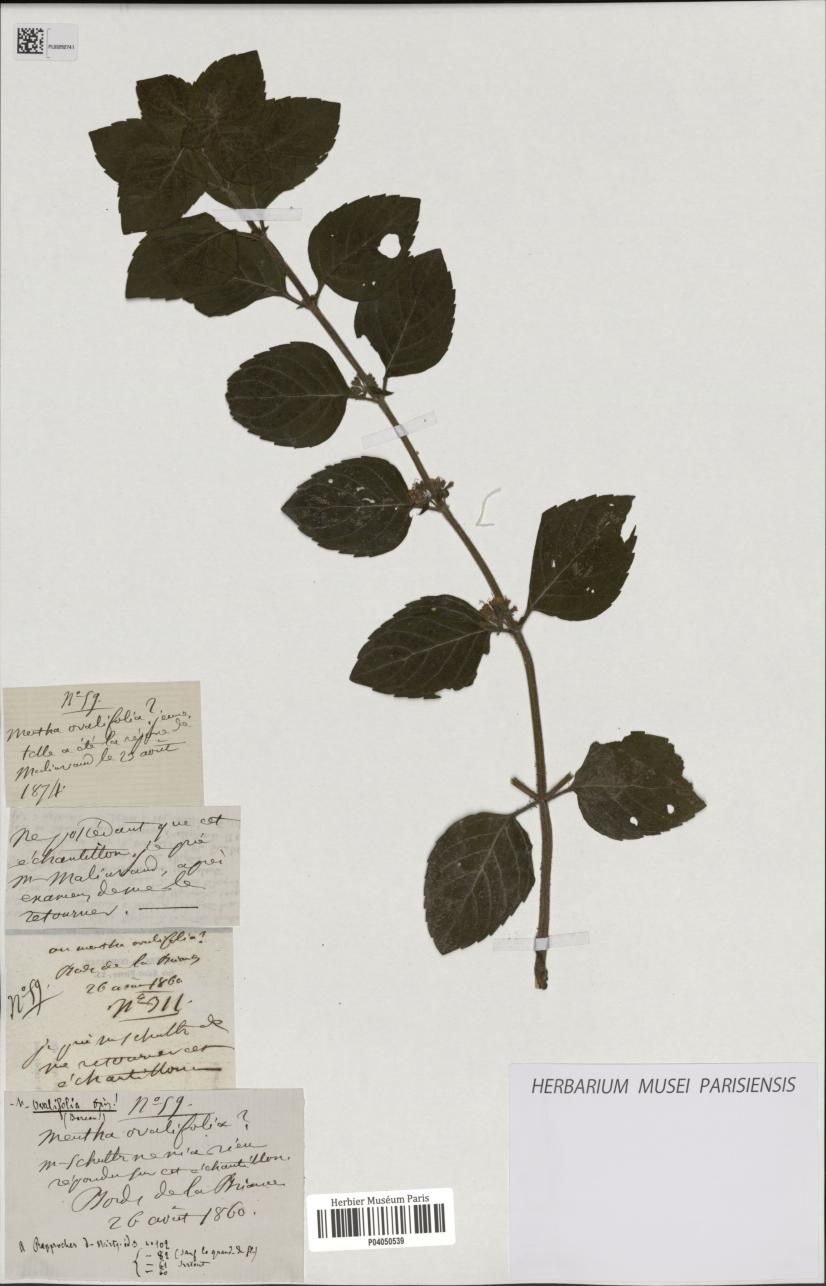 N° 59.
Mentha ovalifolia? jeune,
telle a été la réponse de
Malinvaud le 25 août
1874.
Ne possédant que cet
échantillon, je prie
Mr Malinvaud, après
examen, de me le
retourner.
ou mentha ovalifolia?
Bords de la Briance
26 août 1860
N° 59.
N° 511.
je prie m schultz de
me retourner cet
échantillon
- M. ovalifolia Opiz!
(Boreau!)
N° 59.
Mentha ovalifolia?
m- Schultz ne m'a rien
répondu sur cet échantillon.
Bords de la Briance
26 août 1860.
A Rapprocher d. n° 102
- 82 (sauf la grand. d. fl)
- 61 surtout
- 60
HERBARIUM MUSEI PARISIENSIS
Herbier Muséum Paris
P04050539